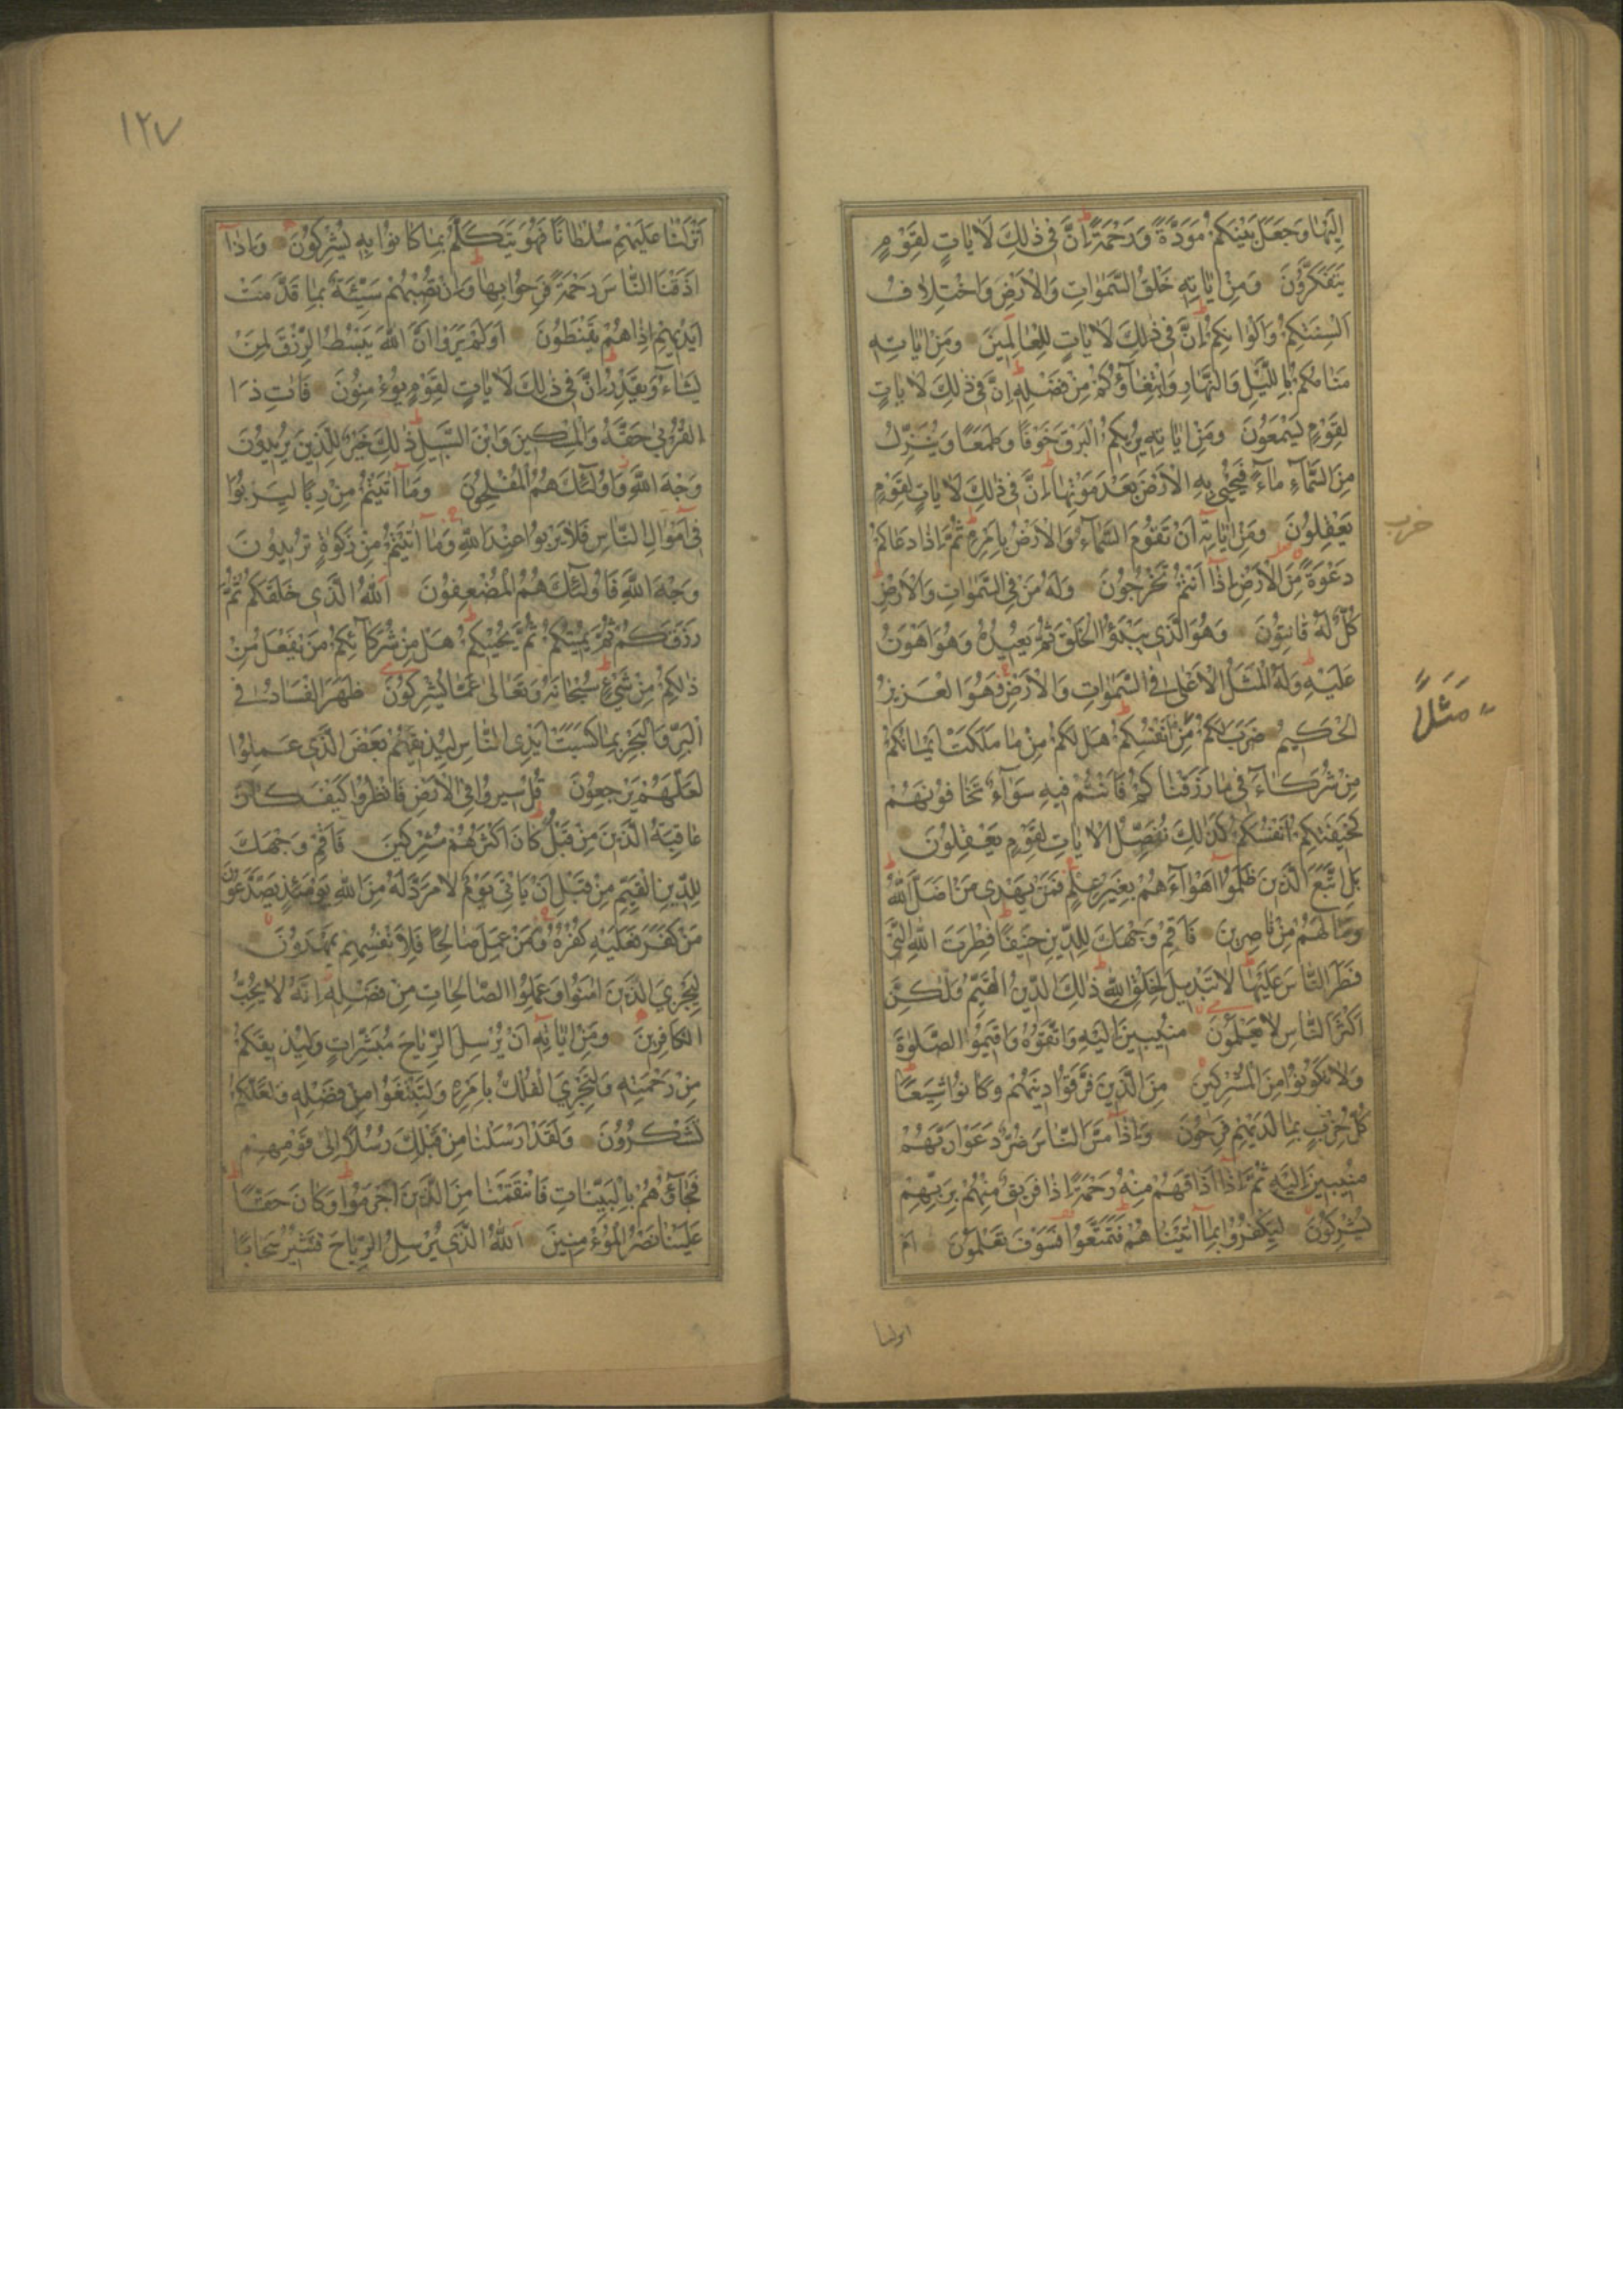 اِلَيْهَا وَجَعَلَ بَيْنَكُمْ مَوَدَّةً وَرَحْمَةً اِنَّ فِي ذٰلِكَ لَاٰيَاتٍ لِقَوْمٍ
يَتَفَكَّرُونَ وَمِنْ اٰيَاتِهِ خَلْقُ السَّمٰوَاتِ وَالْاَرْضِ وَاخْتِلَافُ
اَلْسِنَتِكُمْ وَاَلْوَانِكُمْ اِنَّ فِي ذٰلِكَ لَاٰيَاتٍ لِلْعَالِمِينَ وَمِنْ اٰيَاتِهِ
مَنَامُكُمْ بِاللَّيْلِ وَالنَّهَارِ وَابْتِغَاؤُكُمْ مِنْ فَضْلِهِ اِنَّ فِي ذٰلِكَ لَاٰيَاتٍ
لِقَوْمٍ يَسْمَعُونَ وَمِنْ اٰيَاتِهِ يُرِيكُمُ الْبَرْقَ خَوْفًا وَطَمَعًا وَيُنَزِّلُ
مِنَ السَّمَاءِ مَاءً فَيُحْيِي بِهِ الْاَرْضَ بَعْدَ مَوْتِهَا اِنَّ فِي ذٰلِكَ لَاٰيَاتٍ لِقَوْمٍ
يَعْقِلُونَ وَمِنْ اٰيَاتِهِ اَنْ تَقُومَ السَّمَاءُ وَالْاَرْضُ بِاَمْرِهِ ثُمَّ اِذَا دَعَاكُمْ
حزب
دَعْوَةً مِنَ الْاَرْضِ اِذَا اَنْتُمْ تَخْرُجُونَ وَلَهُ مَنْ فِي السَّمٰوَاتِ وَالْاَرْضِ
كُلٌّ لَهُ قَانِتُونَ وَهُوَ الَّذِي يَبْدَؤُا الْخَلْقَ ثُمَّ يُعِيدُهُ وَهُوَ اَهْوَنُ
عَلَيْهِ وَلَهُ الْمَثَلُ الْاَعْلٰى فِي السَّمٰوَاتِ وَالْاَرْضِ وَهُوَ الْعَزِيزُ
مَثَلًا
الْحَكِيمُ ضَرَبَ لَكُمْ مِنْ اَنْفُسِكُمْ هَلْ لَكُمْ مِنْ مَا مَلَكَتْ اَيْمَانُكُمْ
مِنْ شُرَكَاءَ فِي مَا رَزَقْنَاكُمْ فَاَنْتُمْ فِيهِ سَوَاءٌ تَخَافُونَهُمْ
كَخِيفَتِكُمْ اَنْفُسَكُمْ كَذٰلِكَ نُفَصِّلُ الْاٰيَاتِ لِقَوْمٍ يَعْقِلُونَ
بَلِ اتَّبَعَ الَّذِينَ ظَلَمُوا اَهْوَاءَهُمْ بِغَيْرِ عِلْمٍ فَمَنْ يَهْدِي مَنْ اَضَلَّ اللّٰهُ
وَمَا لَهُمْ مِنْ نَاصِرِينَ فَاَقِمْ وَجْهَكَ لِلدِّينِ حَنِيفًا فِطْرَتَ اللّٰهِ الَّتِي
فَطَرَ النَّاسَ عَلَيْهَا لَا تَبْدِيلَ لِخَلْقِ اللّٰهِ ذٰلِكَ الدِّينُ الْقَيِّمُ وَلٰكِنَّ
اَكْثَرَ النَّاسِ لَا يَعْلَمُونَ مُنِيبِينَ اِلَيْهِ وَاتَّقُوهُ وَاَقِيمُوا الصَّلٰوةَ
وَلَا تَكُونُوا مِنَ الْمُشْرِكِينَ مِنَ الَّذِينَ فَرَّقُوا دِينَهُمْ وَكَانُوا شِيَعًا
كُلُّ حِزْبٍ بِمَا لَدَيْهِمْ فَرِحُونَ وَاِذَا مَسَّ النَّاسَ ضُرٌّ دَعَوْا رَبَّهُمْ
مُنِيبِينَ اِلَيْهِ ثُمَّ اِذَا اَذَاقَهُمْ مِنْهُ رَحْمَةً اِذَا فَرِيقٌ مِنْهُمْ بِرَبِّهِمْ
يُشْرِكُونَ لِيَكْفُرُوا بِمَا اٰتَيْنَاهُمْ فَتَمَتَّعُوا فَسَوْفَ تَعْلَمُونَ اَمْ
انزلنا
١٢٧
اَنْزَلْنَا عَلَيْهِمْ سُلْطَانًا فَهُوَ يَتَكَلَّمُ بِمَا كَانُوا بِهِ يُشْرِكُونَ وَاِذَا
اَذَقْنَا النَّاسَ رَحْمَةً فَرِحُوا بِهَا وَاِنْ تُصِبْهُمْ سَيِّئَةٌ بِمَا قَدَّمَتْ
اَيْدِيهِمْ اِذَا هُمْ يَقْنَطُونَ اَوَلَمْ يَرَوْا اَنَّ اللّٰهَ يَبْسُطُ الرِّزْقَ لِمَنْ
يَشَاءُ وَيَقْدِرُ اِنَّ فِي ذٰلِكَ لَاٰيَاتٍ لِقَوْمٍ يُؤْمِنُونَ فَاٰتِ ذَا
الْقُرْبٰى حَقَّهُ وَالْمِسْكِينَ وَابْنَ السَّبِيلِ ذٰلِكَ خَيْرٌ لِلَّذِينَ يُرِيدُونَ
وَجْهَ اللّٰهِ وَاُولٰئِكَ هُمُ الْمُفْلِحُونَ وَمَا اٰتَيْتُمْ مِنْ رِبًا لِيَرْبُوَا
فِي اَمْوَالِ النَّاسِ فَلَا يَرْبُوا عِنْدَ اللّٰهِ وَمَا اٰتَيْتُمْ مِنْ زَكٰوةٍ تُرِيدُونَ
وَجْهَ اللّٰهِ فَاُولٰئِكَ هُمُ الْمُضْعِفُونَ اَللّٰهُ الَّذِي خَلَقَكُمْ ثُمَّ
رَزَقَكُمْ ثُمَّ يُمِيتُكُمْ ثُمَّ يُحْيِيكُمْ هَلْ مِنْ شُرَكَائِكُمْ مَنْ يَفْعَلُ مِنْ
ذٰلِكُمْ مِنْ شَيْءٍ سُبْحَانَهُ وَتَعَالٰى عَمَّا يُشْرِكُونَ ظَهَرَ الْفَسَادُ فِي
الْبَرِّ وَالْبَحْرِ بِمَا كَسَبَتْ اَيْدِي النَّاسِ لِيُذِيقَهُمْ بَعْضَ الَّذِي عَمِلُوا
لَعَلَّهُمْ يَرْجِعُونَ قُلْ سِيرُوا فِي الْاَرْضِ فَانْظُرُوا كَيْفَ كَانَ
عَاقِبَةُ الَّذِينَ مِنْ قَبْلُ كَانَ اَكْثَرُهُمْ مُشْرِكِينَ فَاَقِمْ وَجْهَكَ
لِلدِّينِ الْقَيِّمِ مِنْ قَبْلِ اَنْ يَاْتِيَ يَوْمٌ لَا مَرَدَّ لَهُ مِنَ اللّٰهِ يَوْمَئِذٍ يَصَّدَّعُونَ
مَنْ كَفَرَ فَعَلَيْهِ كُفْرُهُ وَمَنْ عَمِلَ صَالِحًا فَلِاَنْفُسِهِمْ يَمْهَدُونَ
لِيَجْزِيَ الَّذِينَ اٰمَنُوا وَعَمِلُوا الصَّالِحَاتِ مِنْ فَضْلِهِ اِنَّهُ لَا يُحِبُّ
الْكَافِرِينَ وَمِنْ اٰيَاتِهِ اَنْ يُرْسِلَ الرِّيَاحَ مُبَشِّرَاتٍ وَلِيُذِيقَكُمْ
مِنْ رَحْمَتِهِ وَلِتَجْرِيَ الْفُلْكُ بِاَمْرِهِ وَلِتَبْتَغُوا مِنْ فَضْلِهِ وَلَعَلَّكُمْ
تَشْكُرُونَ وَلَقَدْ اَرْسَلْنَا مِنْ قَبْلِكَ رُسُلًا اِلٰى قَوْمِهِمْ
فَجَاؤُهُمْ بِالْبَيِّنَاتِ فَانْتَقَمْنَا مِنَ الَّذِينَ اَجْرَمُوا وَكَانَ حَقًّا
عَلَيْنَا نَصْرُ الْمُؤْمِنِينَ اَللّٰهُ الَّذِي يُرْسِلُ الرِّيَاحَ فَتُثِيرُ سَحَابًا